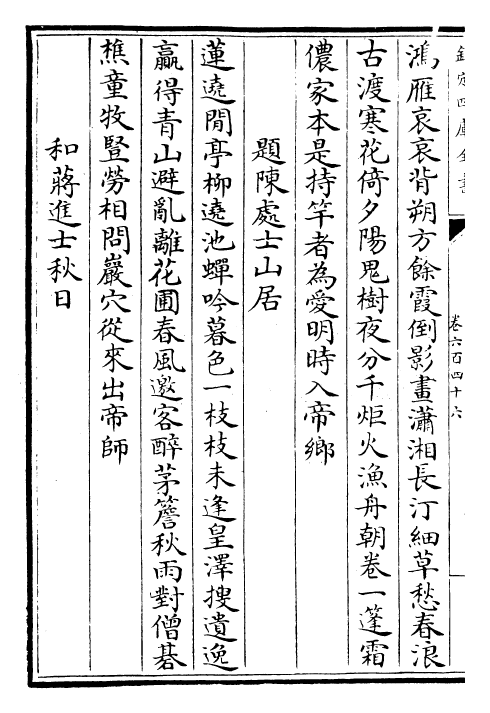 欽定四庫全書
卷六百四十六
鴻雁哀哀背朔方餘霞倒影畫瀟湘長汀細草愁春浪
古渡寒花倚夕陽鬼樹夜分千炬火漁舟朝卷一篷霜
儂家本是持竿者為愛明時入帝鄉
題陳處士山居
蓮遶閒亭柳遶池蟬吟暮色一枝枝未逢皇澤搜遺逸
贏得青山避亂離花圃春風邀客醉茅簷秋雨對僧棊
樵童牧豎勞相問巖穴從來出帝師
和蔣進士秋日